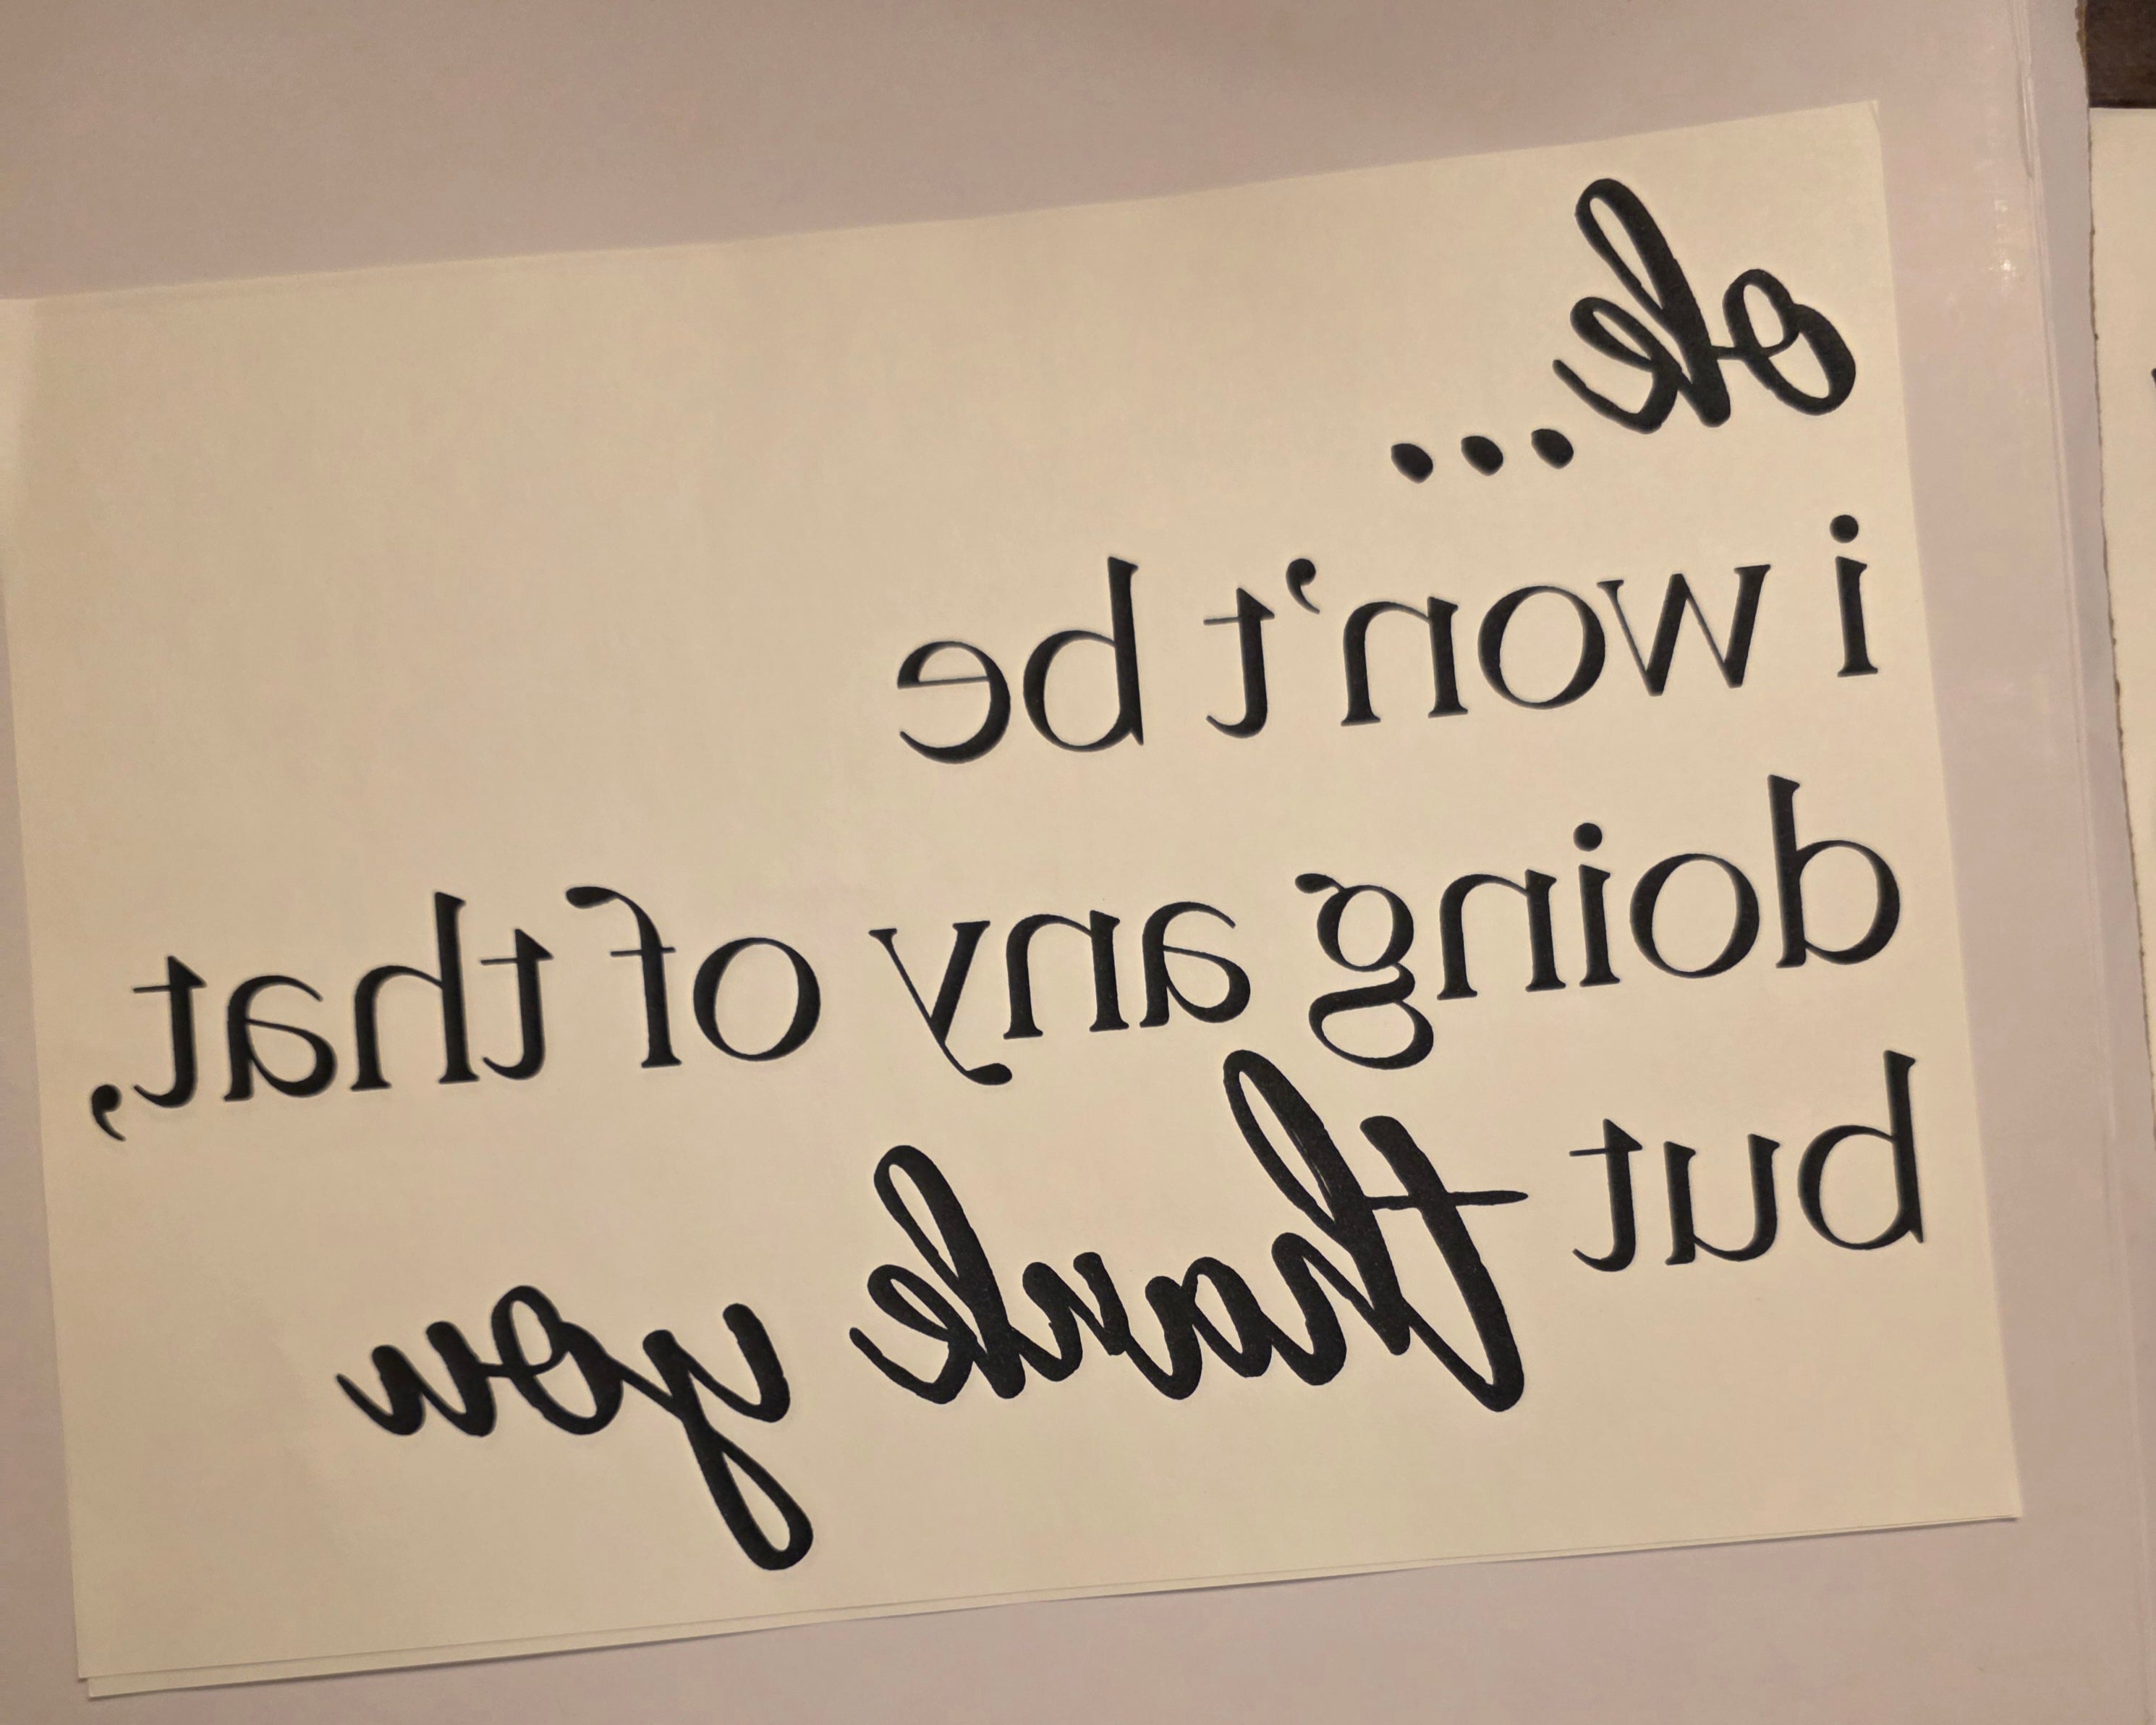 ok...
i won't be
doing any of that,
but thank you